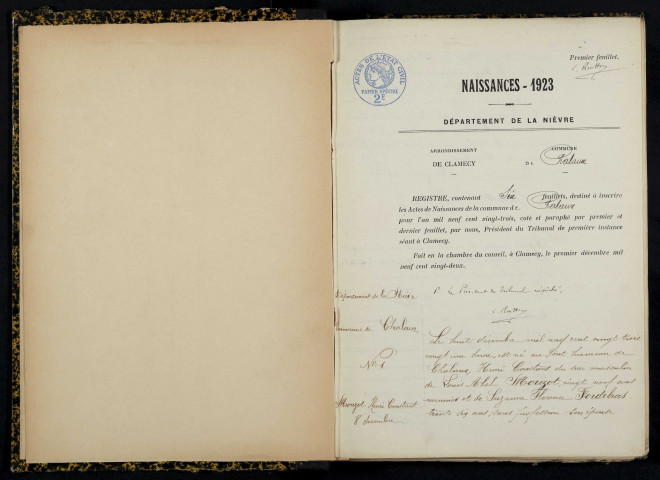 Premier feuillet.
ACTES DE L'ETAT CIVIL
PAPIER SPÉCIAL
2F
NAISSANCES - 1923
DÉPARTEMENT DE LA NIÈVRE
ARRONDISSEMENT
DE CLAMECY
COMMUNE
DE Chalaux
REGISTRE, contenant Six feuillets, destiné à inscrire
les Actes de Naissances de la commune de Chalaux
pour l'an mil neuf cent vingt-trois, coté et paraphé par premier et
dernier feuillet, par nous, Président du Tribunal de première instance
séant à Clamecy.
Fait en la chambre du conseil, à Clamecy, le premier décembre mil
neuf cent vingt-deux.
P. Le Président du Tribunal empêché,
Département de la Nièvre
Commune de Chalaux
N° 1
Mouzot Henri Constant
8 décembre
Le huit décembre mil neuf cent vingt trois
vingt une heure, est né au
Chalaux, Henri Constant du sexe masculin
de Louis Abel Mouzot, vingt neuf ans
et de Suzanne
trente six ans, sans profession son épouse